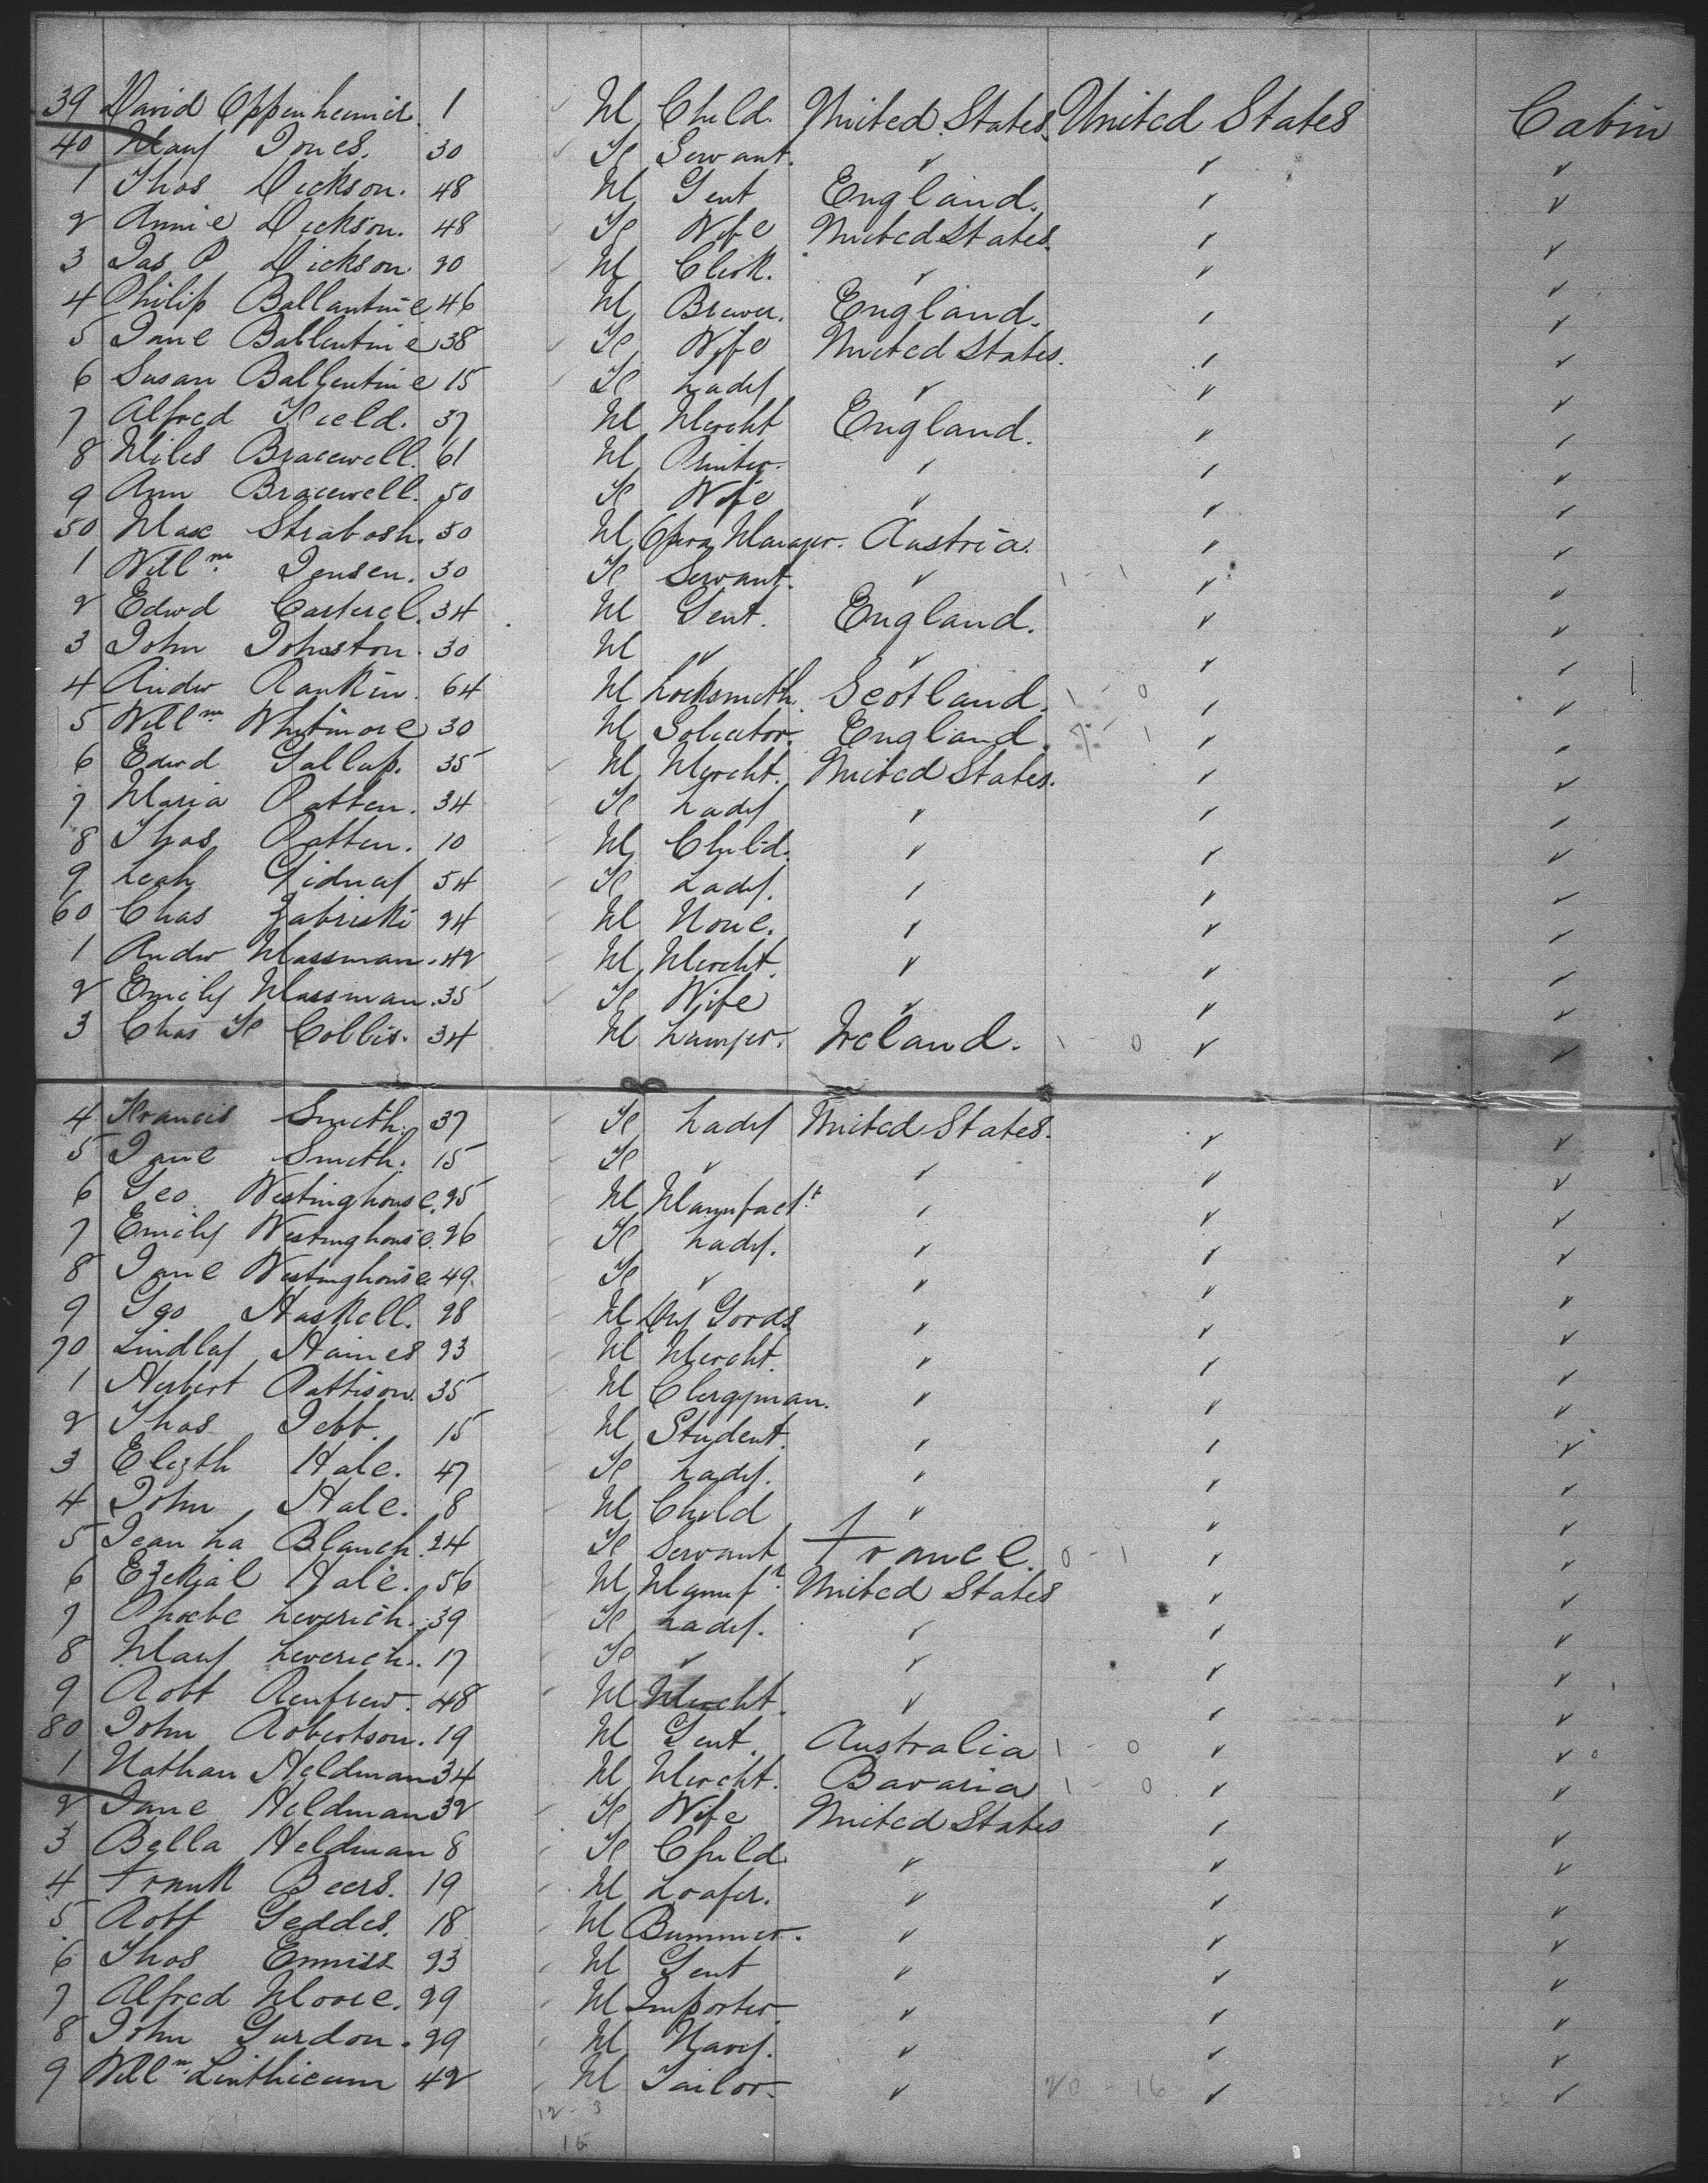 39 David Oppenheimer 1 M Child. United States United States Cabin
40 Mary Jones. 30 F Servant. ✓ ✓ ✓
1 Thos Dickson. 48 M Gent England. ✓ ✓
2 Annie Dickson. 48 F Wife United States. ✓ ✓
3 Jas P Dickson 20 M Clerk. ✓ ✓ ✓
4 Philip Ballantine 46 M Brewer. England. ✓ ✓
5 Jane Ballentine 38 F Wife United States. ✓ ✓
6 Susan Ballentine 15 F Lady ✓ ✓ ✓
7 Alfred Field. 37 M Mercht England. ✓ ✓
8 Miles Bracewell. 61 M Printer. ✓ ✓ ✓
9 Ann Bracewell. 50 F Wife ✓ ✓ ✓
50 Max Strakosh. 50 M Opera Manager. Austria. ✓ ✓
1 Willm Jensen. 30 F Servant. ✓ 1 - 1 ✓ ✓
2 Edwd Carterel. 34 M Gent. England. ✓ ✓
3 John Johnston. 30 M ✓ ✓ ✓ ✓
4 Andw Rankin. 64 M Locksmith. Scotland. 1 - 0 ✓ ✓
5 Willm Whitmore 30 M Solicitor. England. 1 ✓ ✓
6 Edwd Gallup. 35 M Mercht. United States. ✓ ✓
7 Maria Patten. 34 F Lady ✓ ✓ ✓
8 Thos Patten. 10 M Child. ✓ ✓ ✓
9 Leah Gidney 54 F Lady. ✓ ✓ ✓
60 Chas Zabriski 24 M None. ✓ ✓ ✓
1 Andw Massman. 42 M Mercht. ✓ ✓ ✓
2 Emily Massman. 35 F Wife ✓ ✓ ✓
3 Chas F Collis. 34 M Lawyer. Ireland. 1 0 ✓ ✓
4 Francis Smith. 37 F Lady United States. ✓ ✓
5 Jane Smith. 15 F ✓ ✓ ✓ ✓
6 Geo. Westinghouse. 25 M Manufactr. ✓ ✓ ✓
7 Emily Westinghouse. 26 F Lady. ✓ ✓ ✓
8 Jane Westinghouse. 49. F ✓ ✓ ✓ ✓
9 Geo Haskell. 28 M Dry Goods ✓ ✓ ✓
70 Lindley Haines 23 M Mercht. ✓ ✓ ✓
1 Herbert Pattison. 35 M Clergyman. ✓ ✓ ✓
2 Thos Jebb. 15 M Student. ✓ ✓ ✓
3 Elizth Hale. 47 F Lady. ✓ ✓ ✓
4 John Hale. 8 M Child ✓ ✓ ✓
5 Jean La Blanch. 24 F Servant France. 0 - 1 ✓ ✓
6 Ezekial Hale. 56 M Manufr. United States ✓ ✓
7 Phoebe Leverich. 39 F Lady. ✓ ✓ ✓
8 Mary Leverich. 17 F ✓ ✓ ✓ ✓
9 Robt Renfrew. 48 M Mercht. ✓ ✓ ✓
80 John Robertson. 19 M Gent. Australia 1 - 0 ✓ ✓
1 Nathan Heldman 34 M Mercht. Bavaria 1 - 0 ✓ ✓
2 Jane Heldman 32 F Wife United States ✓ ✓
3 Bella Heldman 8 F Child ✓ ✓ ✓
4 Frank Beers. 19 M Loafer. ✓ ✓ ✓
5 Robt Geddes. 18 M Bummer. ✓ ✓ ✓
6 Thos Enniss 23 M Gent ✓ ✓ ✓
7 Alfred Moore. 29 M Importer. ✓ ✓ ✓
8 John Gurdon. 29 M Navy. ✓ ✓ ✓
9 Willm. Linthicum 42 M Tailor. ✓ 20 - 16 ✓ ✓
12 - 3
15